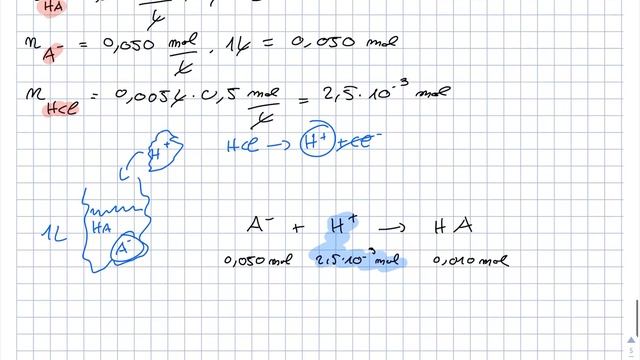 HA
n A⁻ = 0,050 mol/L · 1L = 0,050 mol
n HCl = 0,005L · 0,5 mol/L = 2,5 · 10⁻³ mol
H⁺ HCl → H⁺ + Cl⁻
1L HA A⁻
A⁻ + H⁺ → HA
0,050 mol 2,5·10⁻³ mol 0,010 mol
5